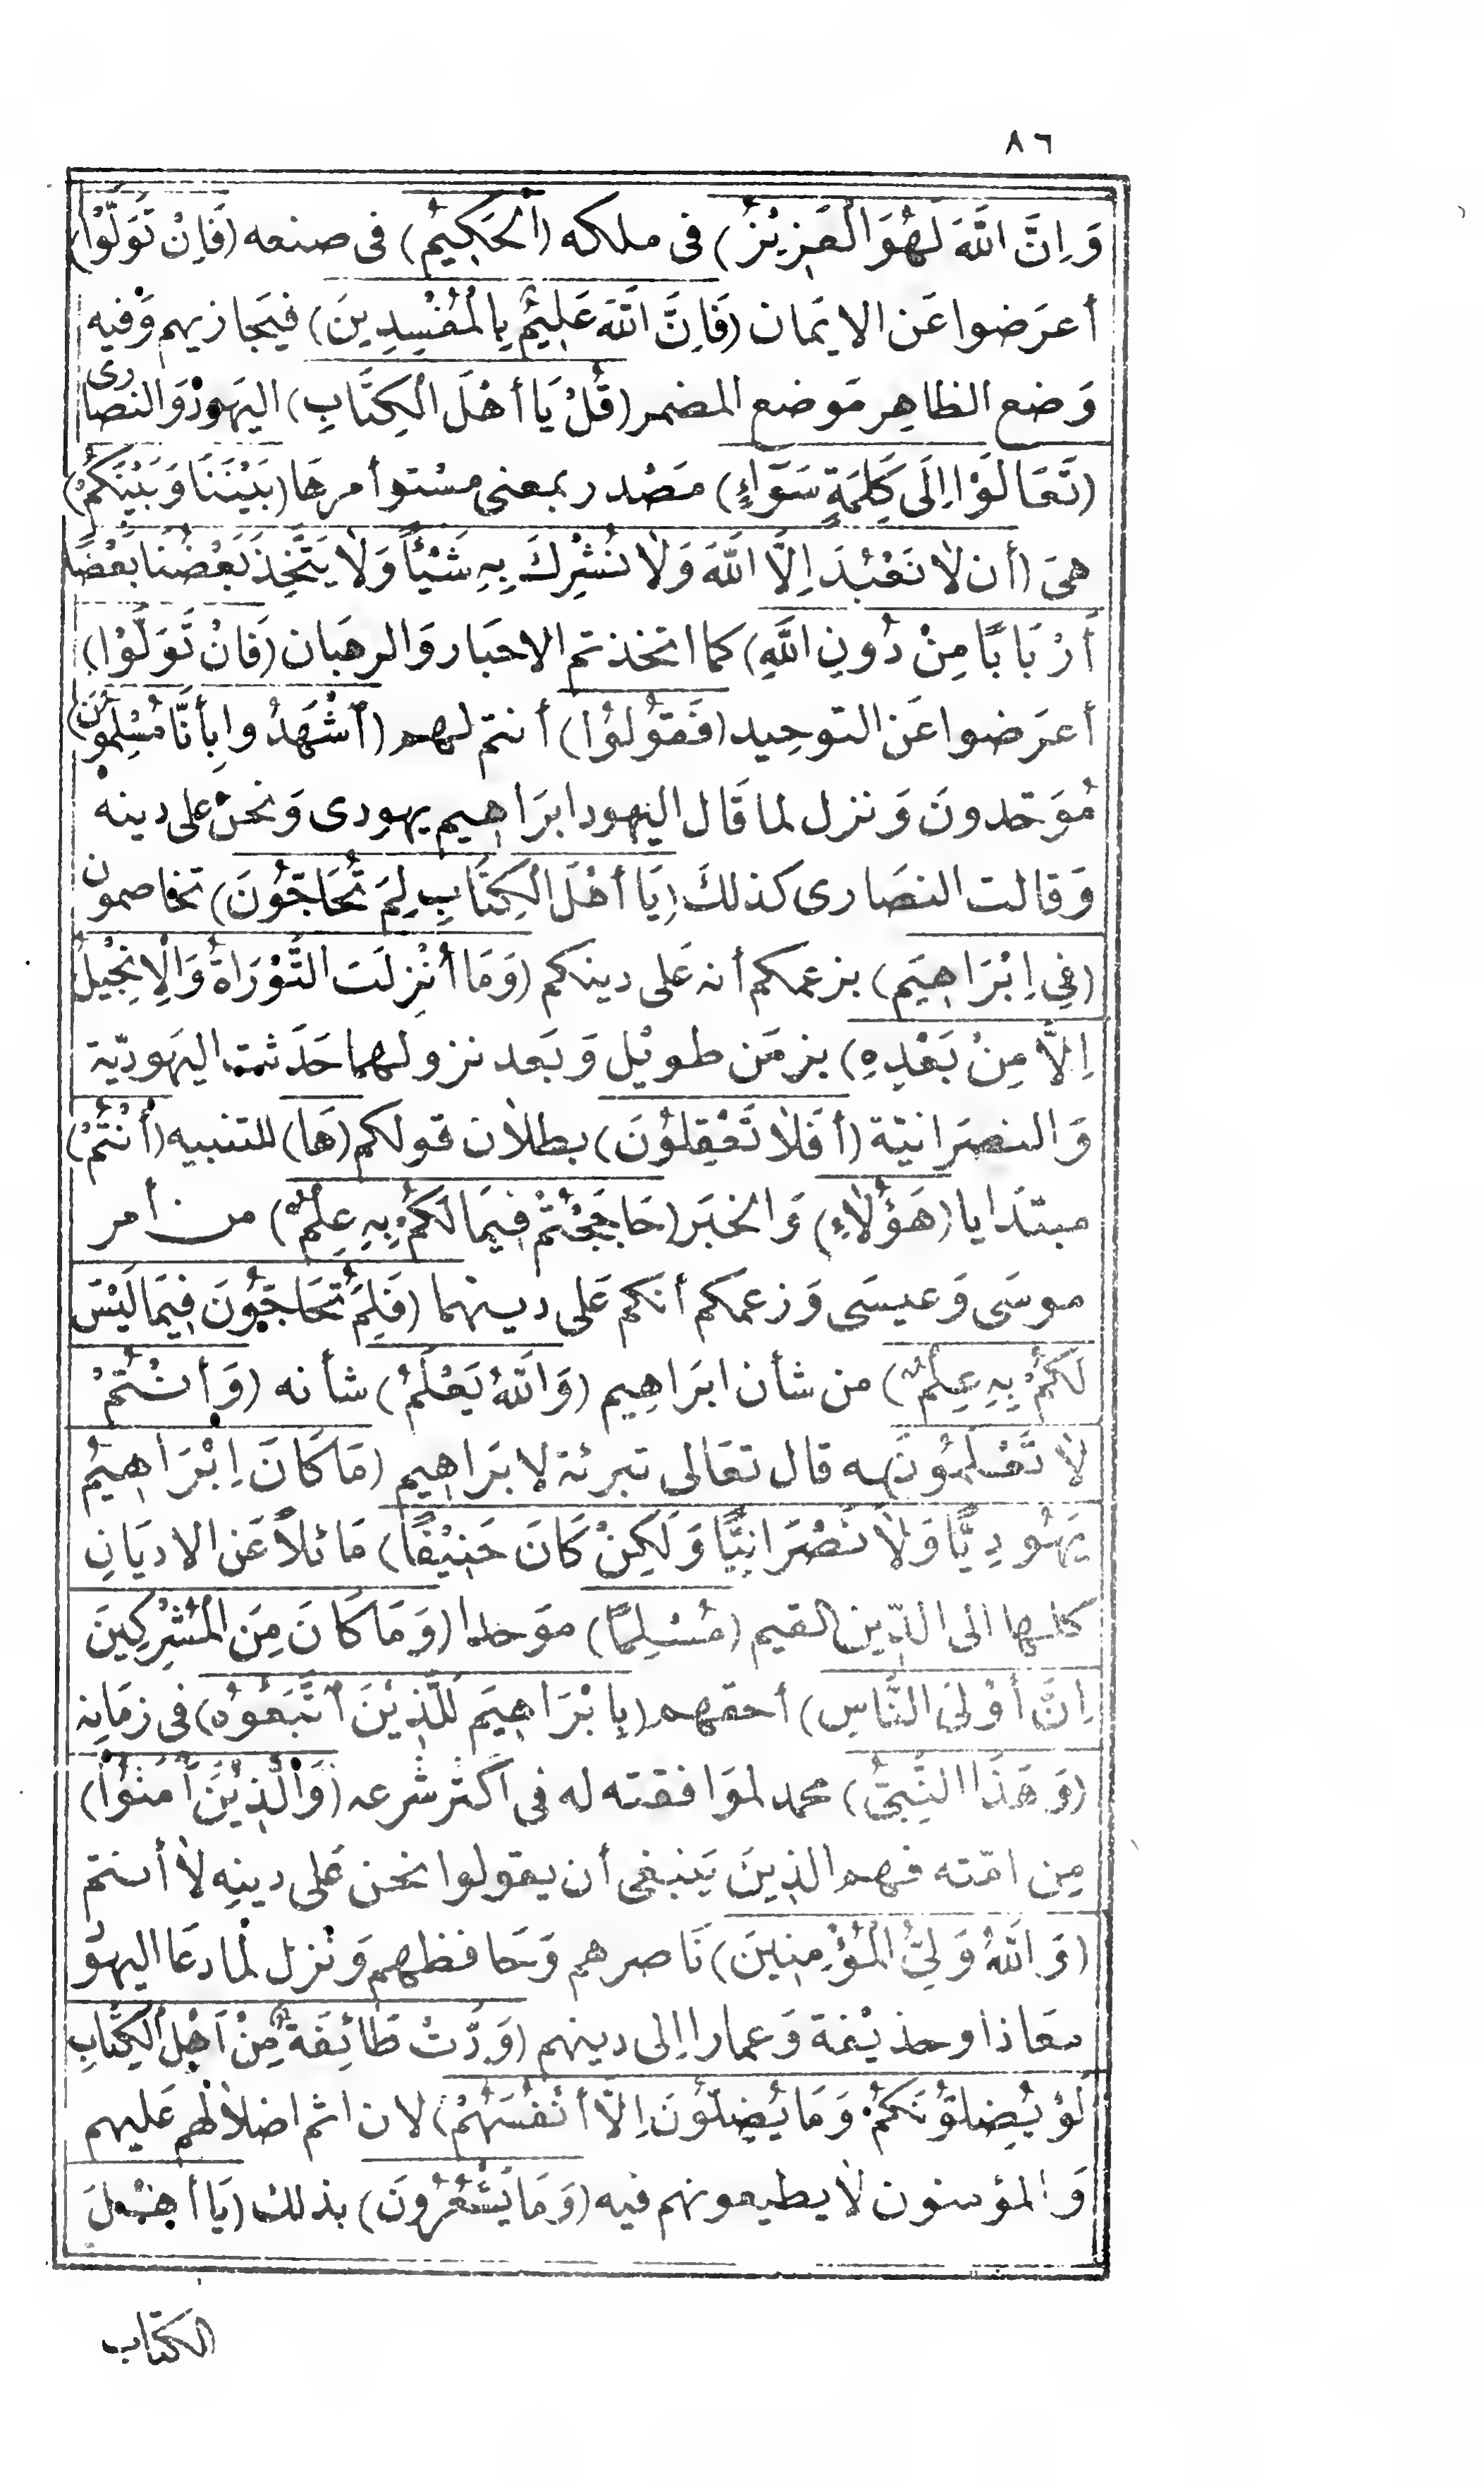 ٨٦
وَاِنَّ اللَّهَ لَهُوَ الْعَزِيْزُ) فى ملكه (اَلْحَكِيْمُ) فى صنعه (فَاِنْ تَوَلَّوْا)
أعرَضوا عَن الايمَان (فَاِنَّ اللَّهَ عَلِيْمٌ بِالْمُفْسِدِينَ) فيجَازيهم وَفيه
وَضع الظاهِر مَوضع المضمر (قُلْ يَا أَهْلَ الْكِتَابِ) اليَهود وَالنصارى
(تَعَالَوْا اِلَى كَلِمَةٍ سَوَآءٍ) مَصْدر بمعنى مسْتو أمرهَا (بَيْنَنَا وَبَيْنَكُمْ)
هىَ (أن لاَ نَعْبُدَ اِلَّا اللَّهَ وَلاَ نُشْرِكَ بِهِ شَيْئًا وَلاَ يَتَّخِذَ بَعْضُنَا بَعْضًا
أَرْبَابًا مِنْ دُونِ اللَّهِ) كما اتخذتم الاحبَار وَالرهبَان (فَاِنْ تَوَلَّوْا)
أعرَضوا عَن التوحِيد (فَقُولُوْا) أنتم لهم (اَشْهَدُوا بِأَنَّا مُسْلِمُوْنَ)
مُوَحّدونَ وَنزل لما قَال اليَهود ابرَاهِيم يهودى وَنحنْ على دينه
وَقالت النصَارى كذلكَ (يَا أَهْلَ الْكِتَابِ لِمَ تُحَاجُّوْنَ) تخاصمون
(فِى اِبْرَاهِيَم) بزعمكم أنه عَلى دينكم (وَمَا أُنْزِلَتَ التَّوْرَاةُ وَالْاِنْجِيْلُ
اِلَّا مِنْ بَعْدِهِ) بزمَن طويْل وَبَعد نزولهما حَدَثت اليَهوديّة
وَالنصرَانيّة (أَفَلاَ تَعْقِلوُنَ) بطلاَن قولكم (هَا) للتنبيه (أَنْتُمْ)
مبتدَا يا (هَؤُلاَءِ) وَالخبَر (حَاجَجْتُمْ فِيْمَا لَكُمْ بِهِ عِلْمٌ) من أمر
موسَى وَعيسَى وَزعمكم أنكم عَلى دينهما (فَلِمَ تُحَاجُّوْنَ فِيْمَا لَيْسَ
لَكُمْ بِهِ عِلْمٌ) من شأن ابرَاهِيم (وَاَللَّهُ يَعْلَمُ) شأنه (وَأَنْتُمْ
لاَ تَعْلَمُوْنَ) ـه قال تعَالى تبرئة لابرَاهِيم (مَا كَانَ اِبْرَاهِيْمُ
يَهُودِيًّا وَلاَ نَصْرَانِيًّا وَلَكِنْ كَانَ حَنِيْفًا) مَائلاً عَن الاديَانِ
كلها الى الدّين القيم (مُسْلِمًا) موَحدا (وَمَا كَانَ مِنَ الْمُشْرِكِينَ
اِنَّ أَوْلَى النَّاسِ) أحقهم (بِاِبْرَاهِيَم لَلَّذِيْنَ اَتَّبَعُوْهُ) فى زمَانِه
(وَهَذَا النَّبِىُّ) محمد لموَافقته له فى اَكثر شرعه (وَالَّذِيْنَ أَمَنُوْا)
مِن امّته فهم الذِينَ يَنبغى أن يقولوا نحن عَلى دينِه لاَ أنتم
(وَاللَّهُ وَلِىُّ الْمُؤْمِنِينَ) نَاصرهم وَحَافظهم وَنزل لمَا دعَا اليهود
معَاذا وحذيْفة وَعمارا اِلى دينهم (وَدَّتْ طَائِفَةٌ مِنْ اَهْلِ الْكِتَابِ
لَوْ يُضِلُّوْنَكُمْ وَمَا يُضِلّوُنَ اِلَّا أَنْفُسَهُمْ) لان اثم اضلاَلهم عَليهم
وَالمؤمنون لاَ يطيعونهم فيه (وَمَا يَشْعُرُونَ) بذلك (يَا أَهْلَ
الكتاب